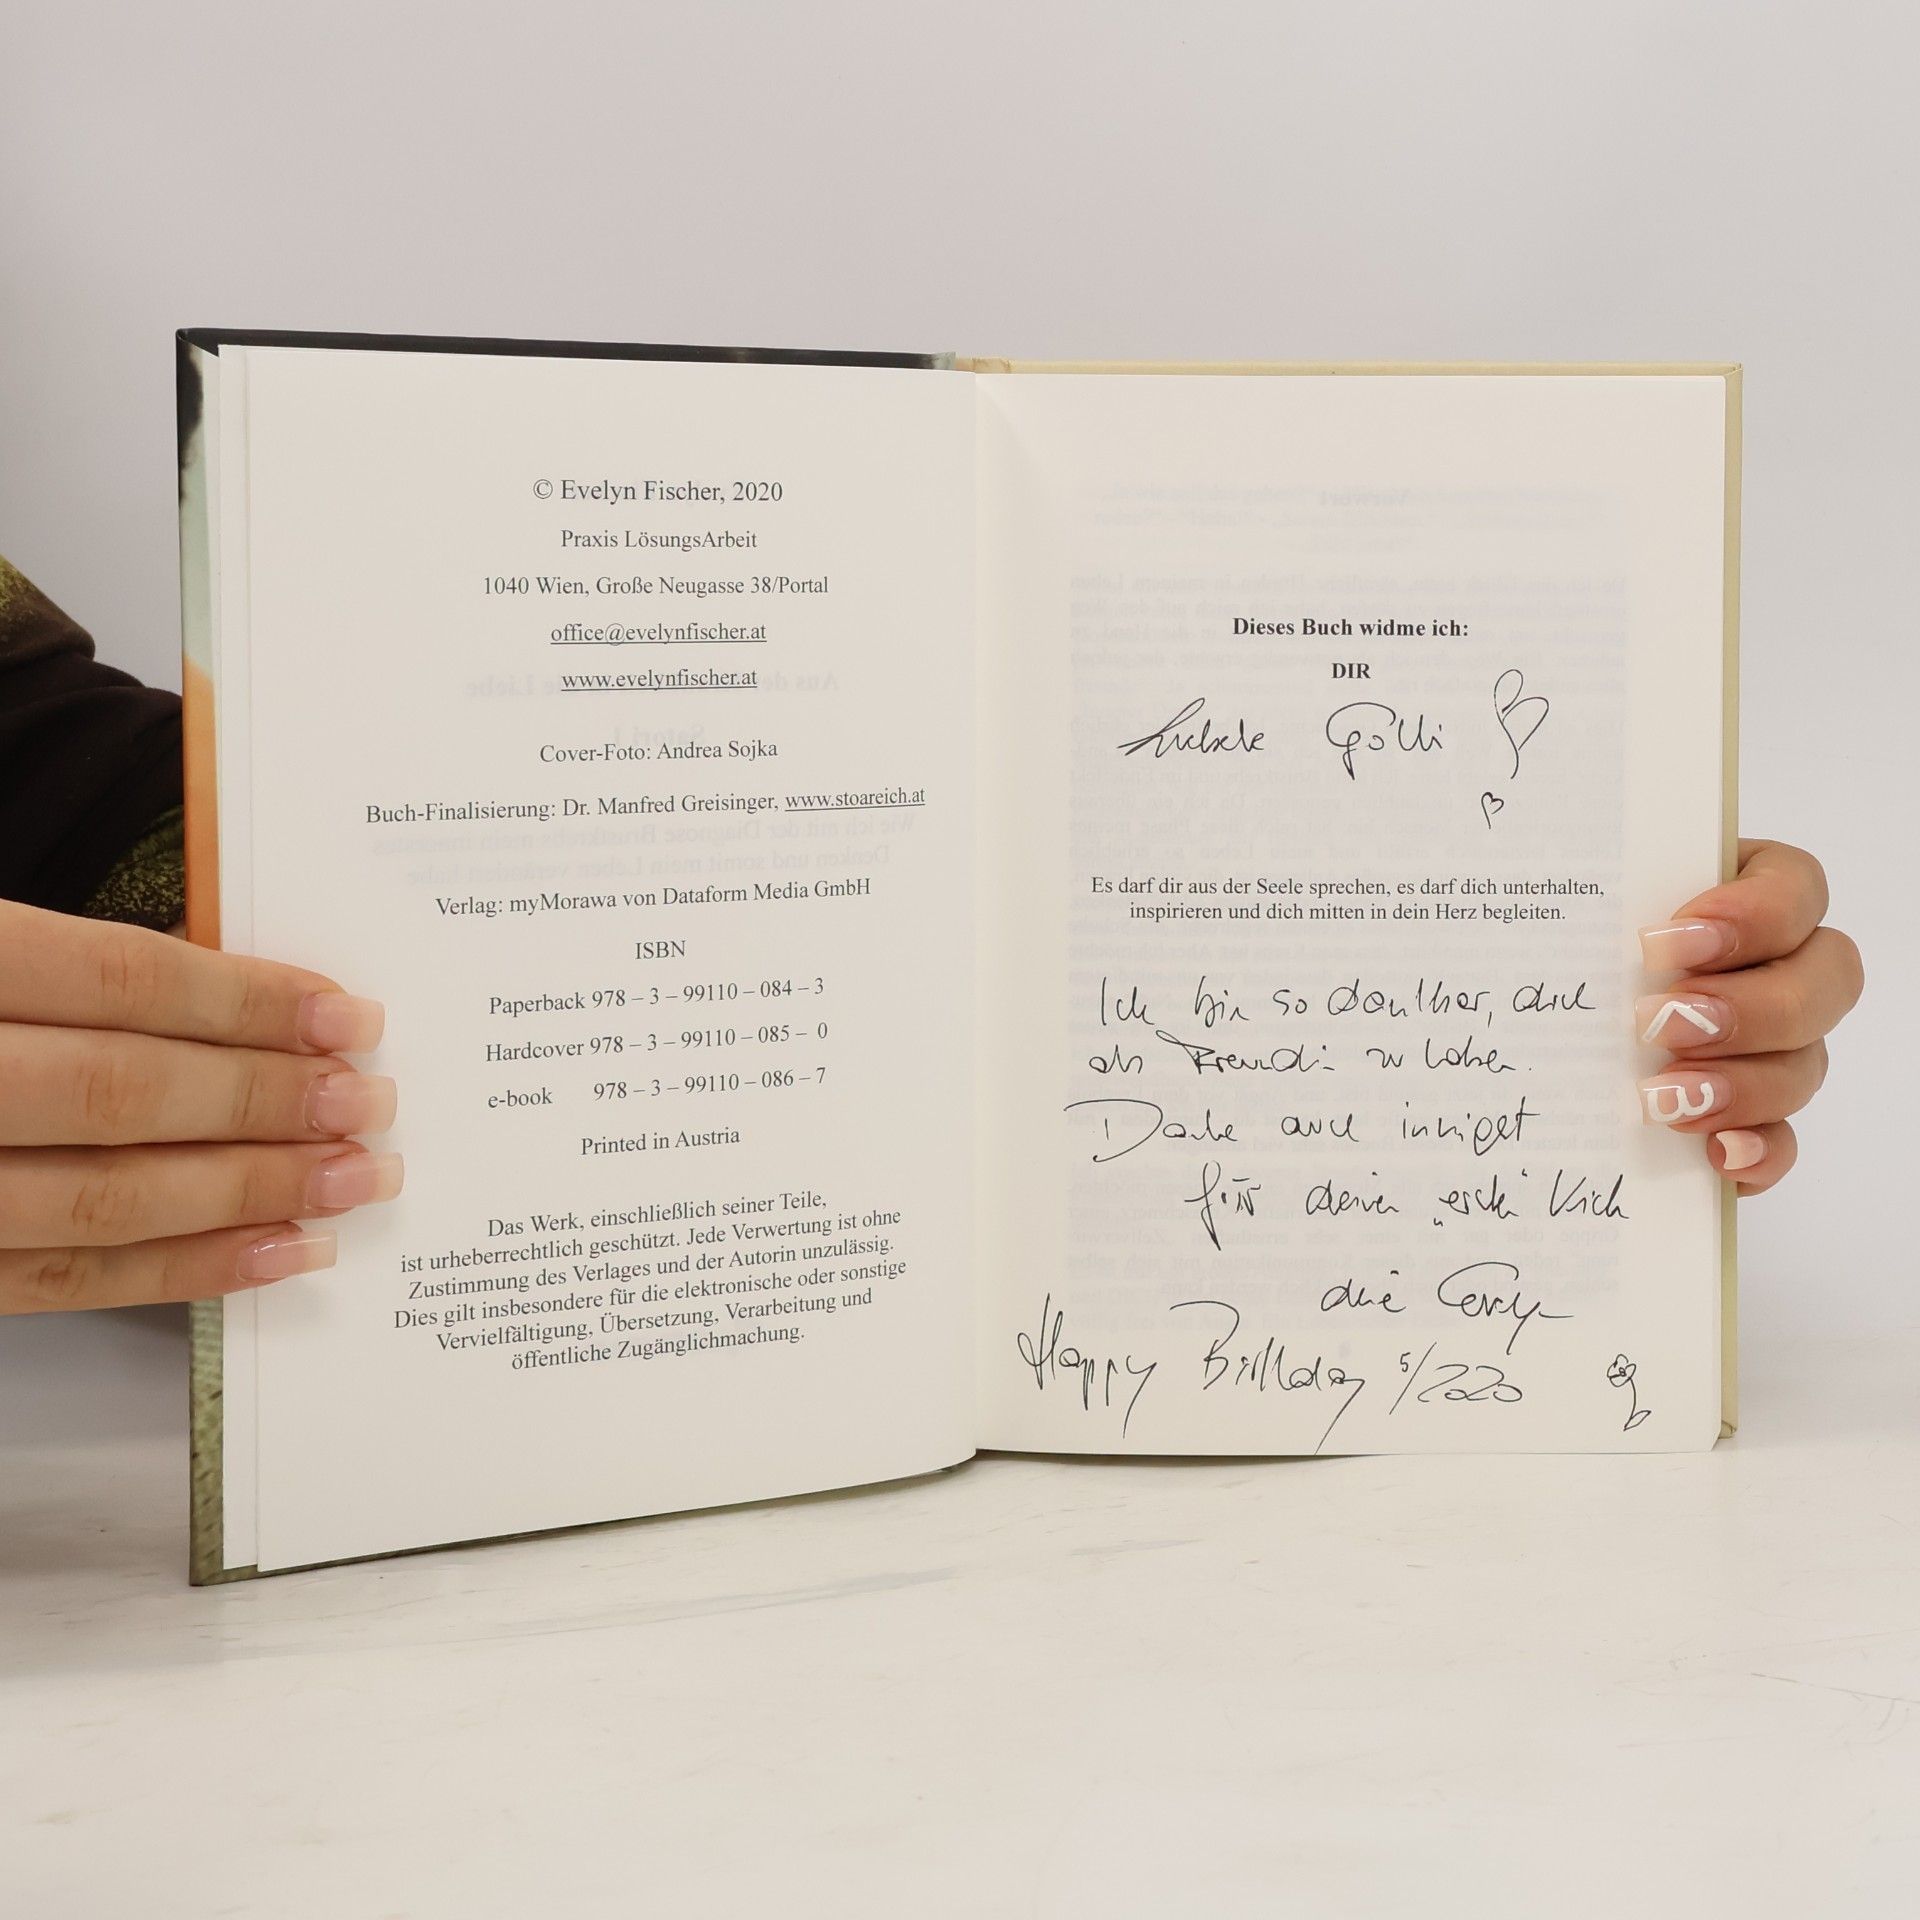 © Evelyn Fischer, 2020
Praxis LösungsArbeit
1040 Wien, Große Neugasse 38/Portal
office@evelynfischer.at
www.evelynfischer.at
Cover-Foto: Andrea Sojka
Buch-Finalisierung: Dr. Manfred Greisinger, www.stoareich.at
Verlag: myMorawa von Dataform Media GmbH
ISBN
Paperback 978 – 3 – 99110 – 084 – 3
Hardcover 978 – 3 – 99110 – 085 – 0
e-book 978 – 3 – 99110 – 086 – 7
Printed in Austria
Das Werk, einschließlich seiner Teile,
ist urheberrechtlich geschützt. Jede Verwertung ist ohne
Zustimmung des Verlages und der Autorin unzulässig.
Dies gilt insbesondere für die elektronische oder sonstige
Vervielfältigung, Übersetzung, Verarbeitung und
öffentliche Zugänglichmachung.
Dieses Buch widme ich:
DIR
Liebste Golli
Es darf dir aus der Seele sprechen, es darf dich unterhalten,
inspirieren und dich mitten in dein Herz begleiten.
Ich bin so dankbar, dich
als Freundin zu haben.
Danke auch innigst
für deinen „ersten"
deine Evelyn
Happy Birthday 5/2020